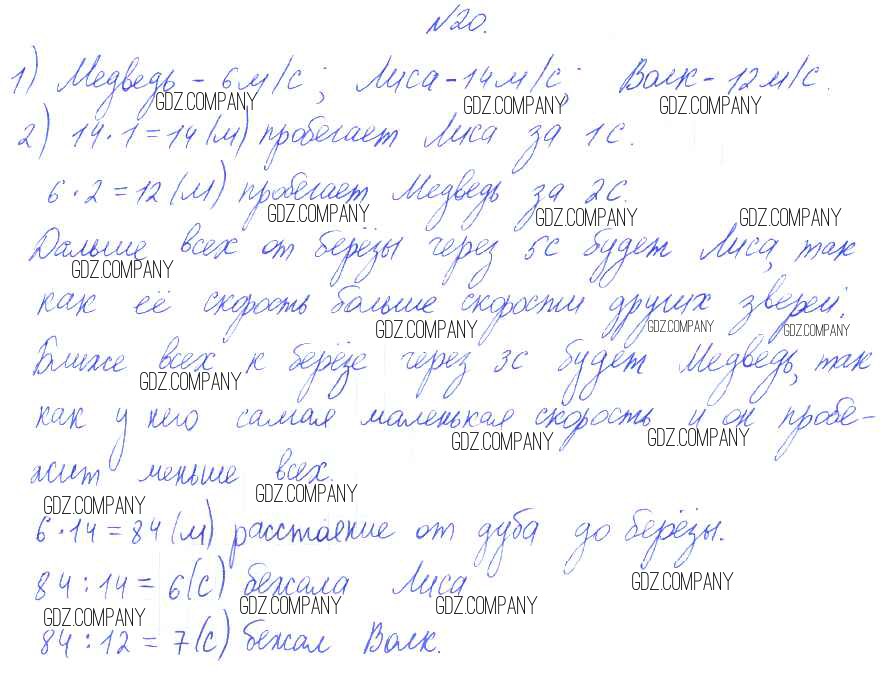 №20.
1) Медведь - 6 м/с; Лиса - 14 м/с; Волк - 12 м/с.
GDZ.COMPANY GDZ.COMPANY GDZ.COMPANY
2) 14 · 1 = 14 (м) пробегает Лиса за 1с.
6 · 2 = 12 (м) пробегает Медведь за 2с.
GDZ.COMPANY GDZ.COMPANY GDZ.COMPANY
Дальше всех от берёзы через 5с будет Лиса, так
GDZ.COMPANY
как её скорость больше скорости других зверей.
GDZ.COMPANY GDZ.COMPANY GDZ.COMPANY
Ближе всех к берёзе через 3с будет Медведь, так
GDZ.COMPANY
как у него самая маленькая скорость и он пробе-
GDZ.COMPANY GDZ.COMPANY
жит меньше всех.
GDZ.COMPANY GDZ.COMPANY
6 · 14 = 84 (м) расстояние от дуба до берёзы.
84 : 14 = 6 (с) бежала Лиса
GDZ.COMPANY
GDZ.COMPANY GDZ.COMPANY GDZ.COMPANY
84 : 12 = 7 (с) бежал Волк.